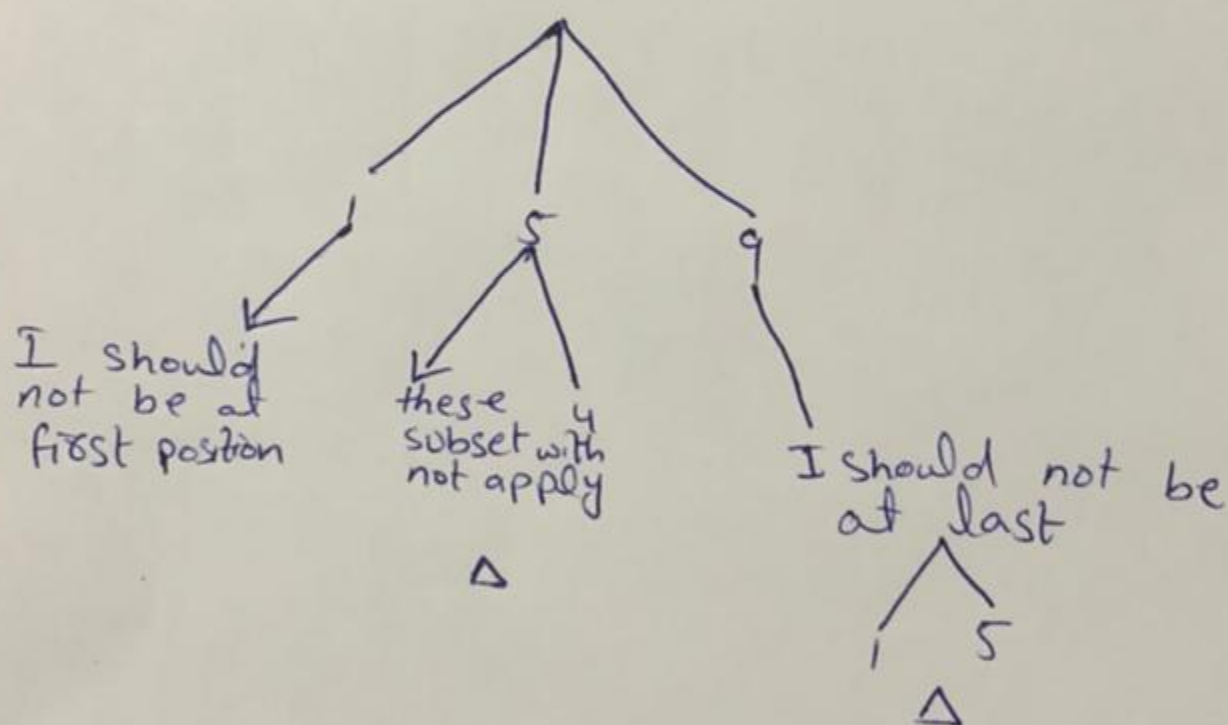 1
5
9
I should
not be at
first position
these
4
subset with
not apply
I should not be
at last
Δ
1
5
Δ